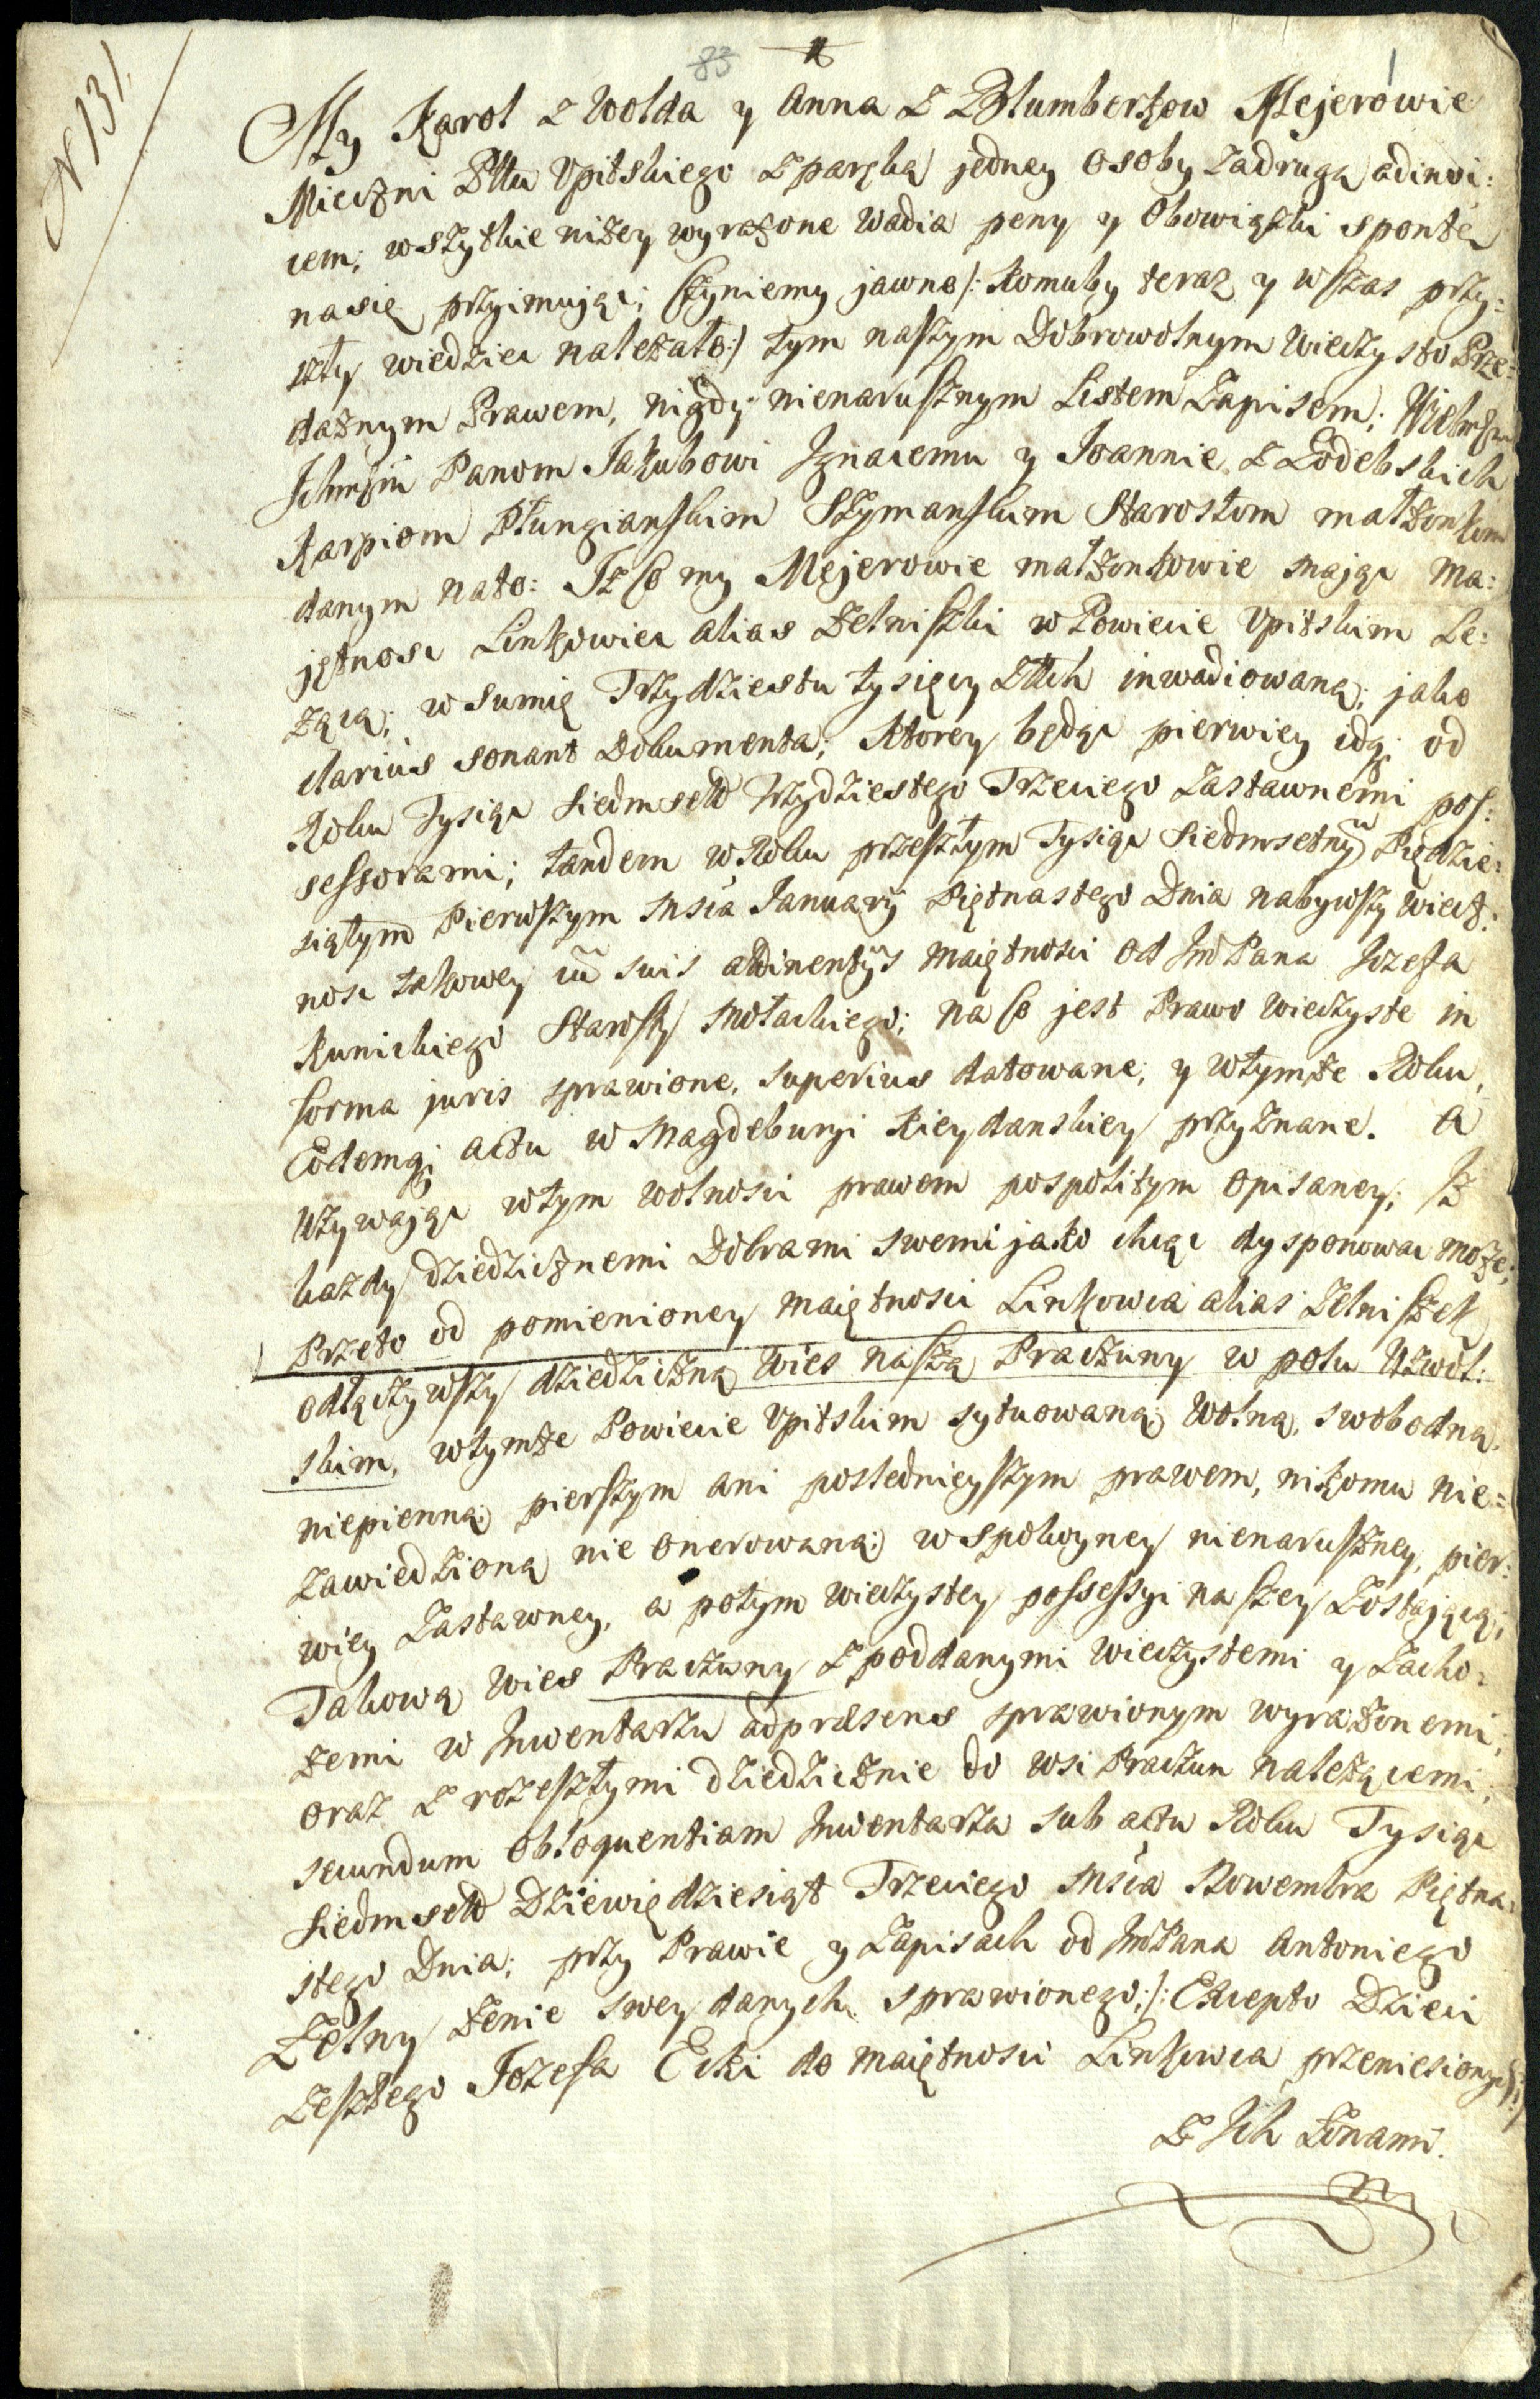 N 131.
83
1
My Karol z Wolda y Anna z Blumberkow Mejerowie
Mieczni Pttu Vpitskiego z paręką jedney osoby za drugą adinvi:
cem; wszytkie niżey wyrażone wadia peny y Obowiązki sponte
na się przyimując; Czyniemy jawno /: komuby teraz y w czas przy:
szły wiedziec należało :/ tym naszym Dobrowolnym Wieczysto Prze:
dażnym Prawem, nigdy nienarusznym Listem Zapisem;
Panom Jakubowi Ignacemu y Joannie z Łodebskich
Karpiom Płungianskim Szymanskim Starostom małżonkom
danym na to: Iż co my Mejerowie małżonkowie mając Ma:
jętnosc Linkowiec alias Zelniszki w Powiecie Vpitskim Le:
żącą; w Sumię Trzydziestu tysięcy Złłch inwadiowaną; jako
clarius sonant Dokumenta; Ktorey będąc pierwiey idq; od
Roku Tysiąc Siedmsett Trzydziestego Trzeciego Zastawnemi pos:
sessorami; tandem w Roku przeszłym Tysiąc Siedmsetnym Pięcdzie:
siątym Pierwszym Msca January Piętnastego Dnia nabywszy wiecz:
nosc takowey cu suis attinentys Maiętnosci od Jmć Pana Jozefa
Kunickiego Starosty Mołackiego; na co jest Prawo wieczyste in
forma juris sprawione, superius datowane; y w tymże Roku,
Eodemq; actu w Magdeburyi Kieydanskiey przyznane. A
Używając w tym wolnosci prawem pospolitym opisaney; Iż
każdy dziedzicznemi Dobrami swemi jako chcąc dysponowac może;
Przeto od pomienioney Maiętnosci Linkowca alias Zelniszek
odłączywszy dziedziczną Wies naszą Praczuny w polu Uzwol:
skim, w tymże Powiecie Vpitskim sytuowaną; Wolną, swobodną,
niepienną; pierszym ani posledniejszym prawem, nikomu nie=
zawiedzioną nie onerowaną; w spokoyney nienaruszney, pier:
wiey Zastawney, a potym wieczystey possessyi naszey Zostającą;
Takową Wies Praczuny z poddanymi wieczystemi y Zacho:
żemi w Inwentarzu ad præsens sprawionym wyrażonemi;
oraz z rozeszłymi dziedzicznie do wsi Praczun należącemi;
secundum obloquentiam Inwentarza sub actu Roku Tysiąc
Siedmsett Dziewięcdziesiąt Trzeciego Msca Nowembra Piętna:
stego Dnia; przy Prawie y Zapisach od Jmć Pana Antoniego
Zelny żenie swey danych sprawionego; /: Excepto Dzieci
Zeszłego Jozefa Ecki do Maiętnosci Linkowca przeniesionych :/
Z Ich Żonami.